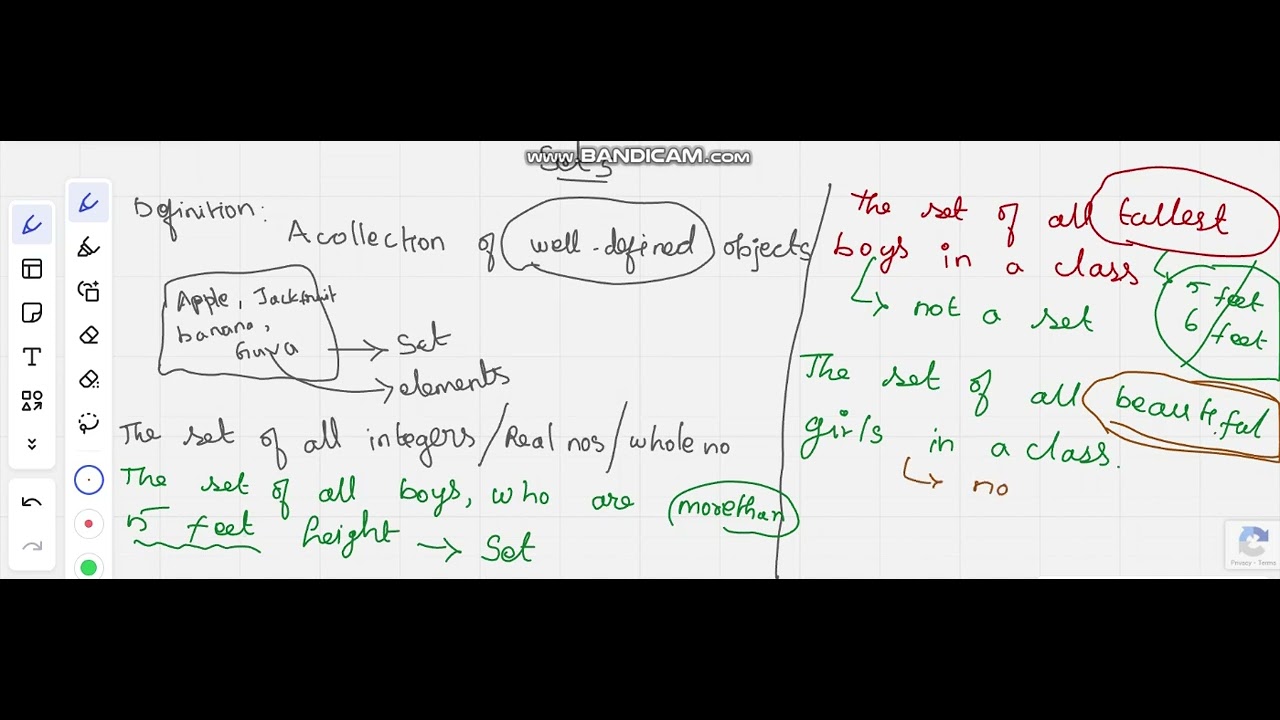 www.BANDICAM.com
Sets
Definition:
A collection of well-defined objects
Apple, Jackfruit
banana,
Guva
→ Set
→ elements
The set of all integers / Real nos / whole no
The set of all boys, who are more than
5 feet height → Set
The set of all tallest
boys in a class
↳ not a set
5 feet
6 feet
The set of all beautiful
girls in a class.
↳ no
T
Privacy - Terms